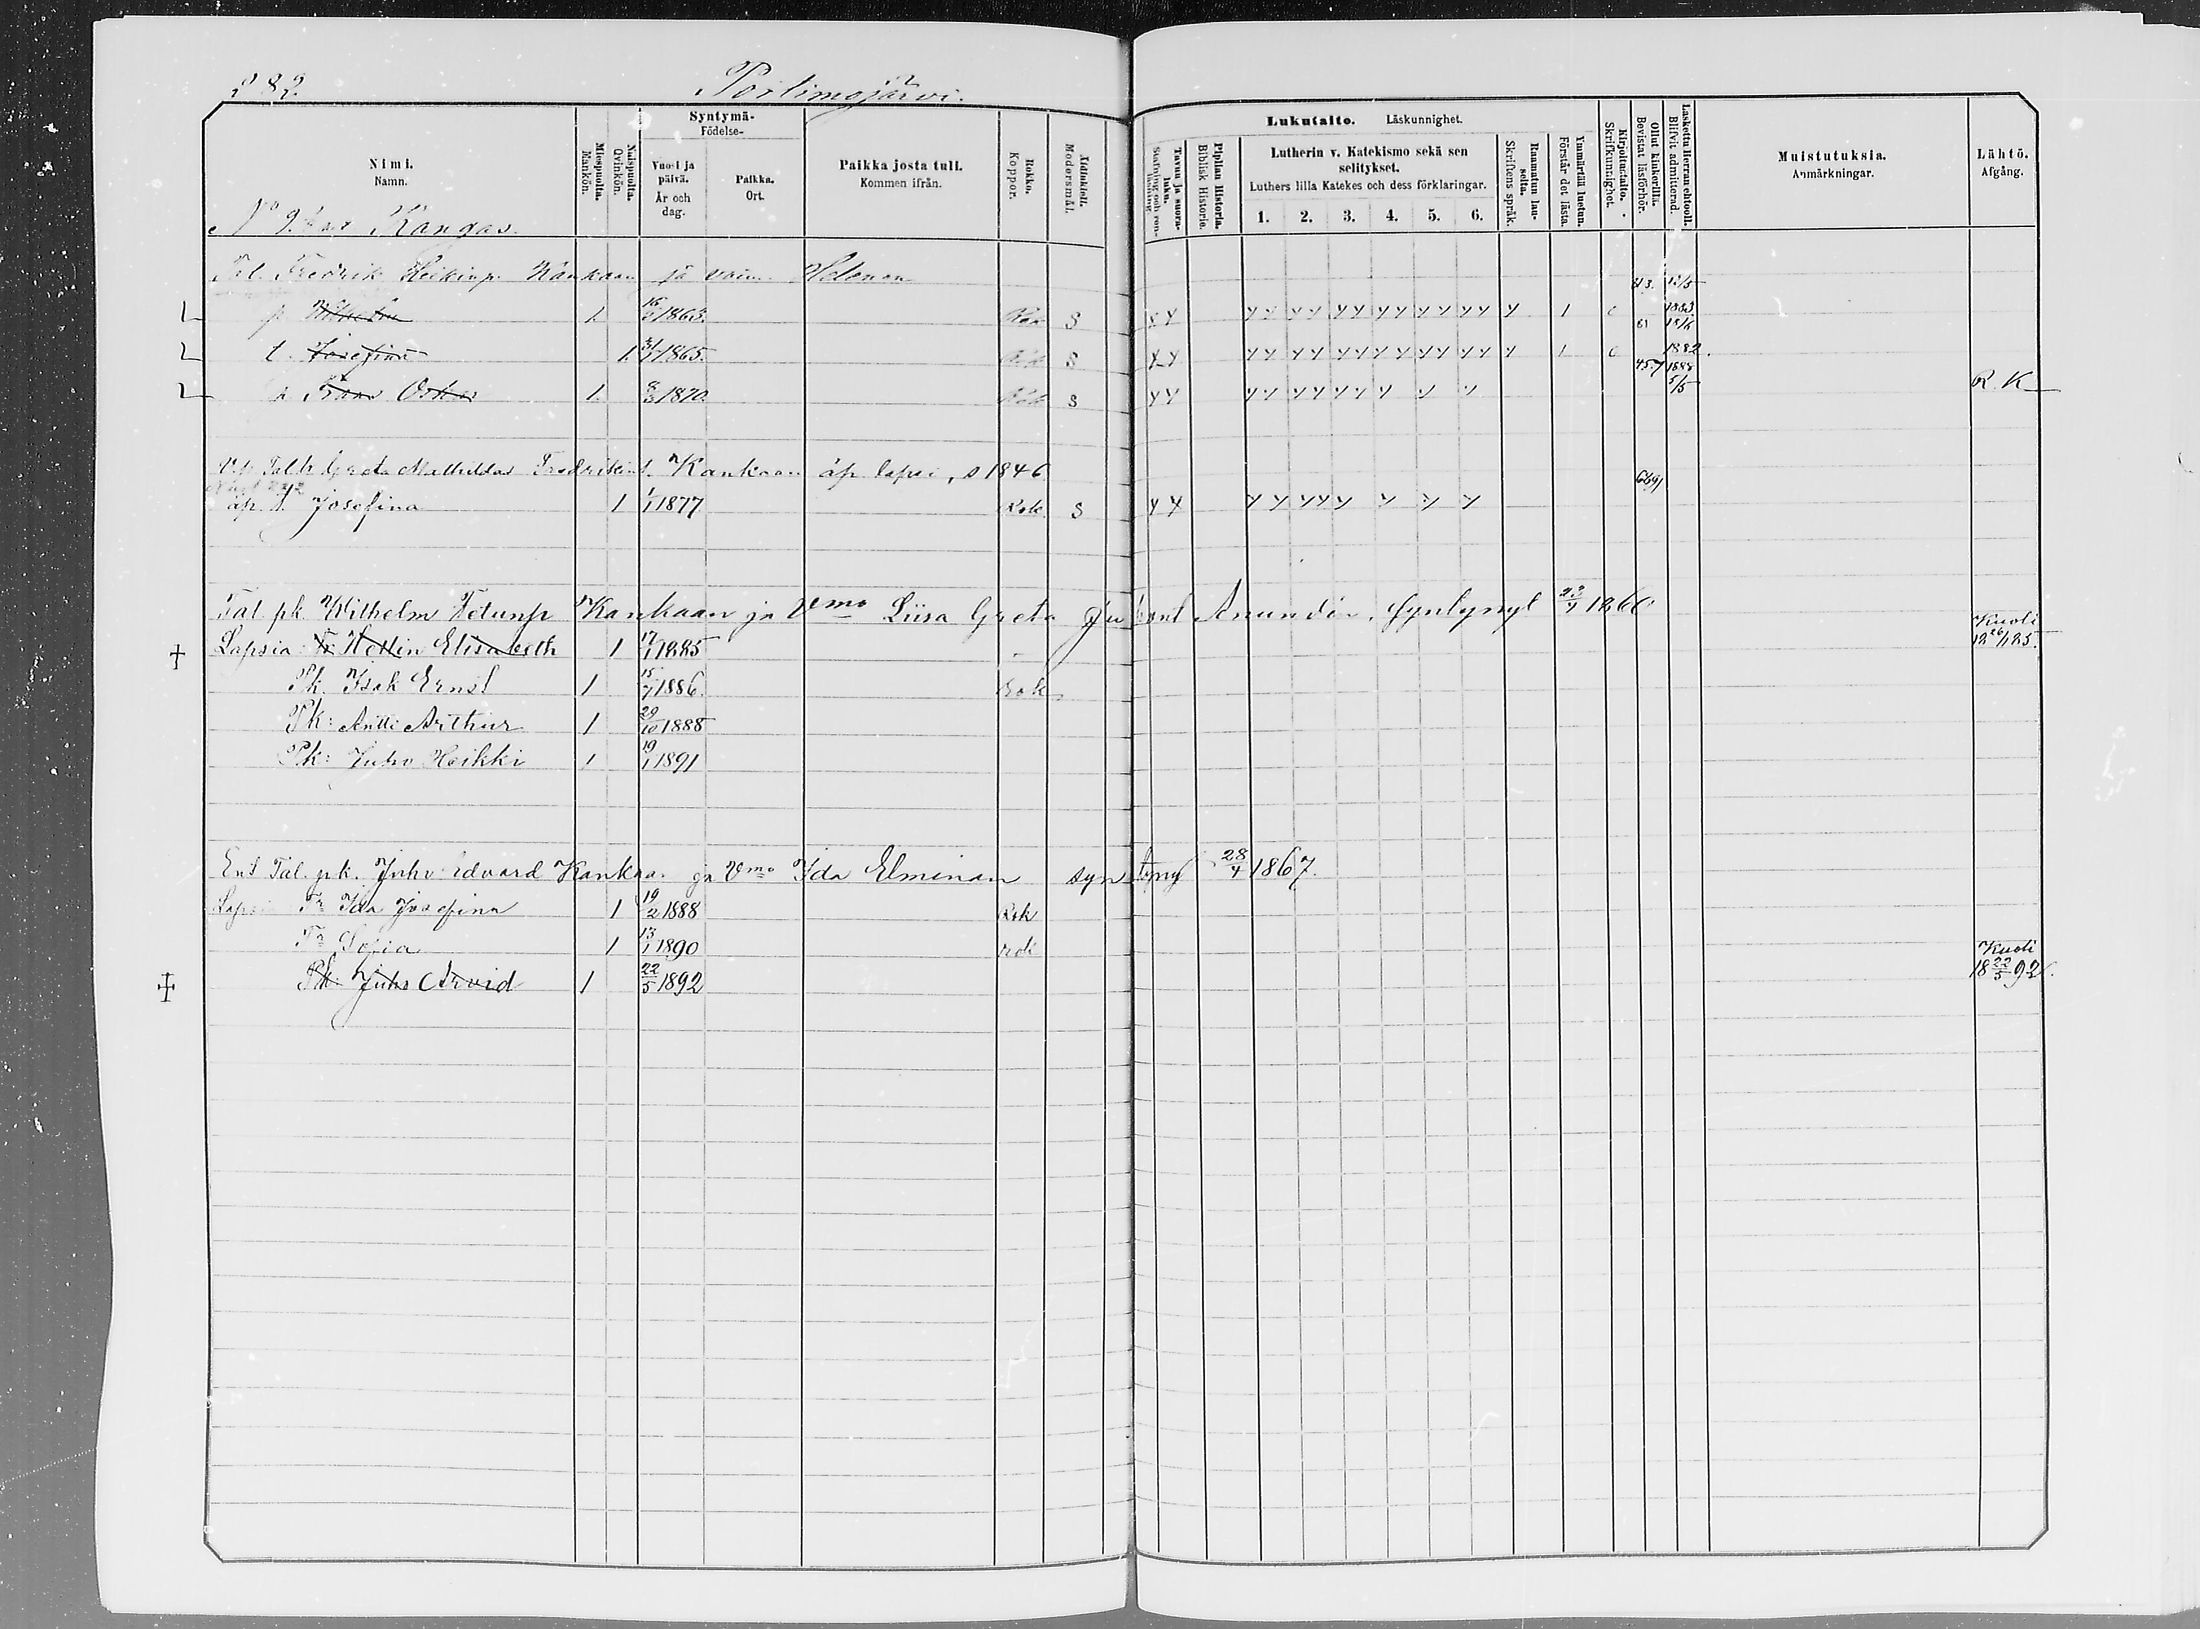 282.
Portimojärvi.
Nimi.
Namn.
Miespuolta.
Mankön.
Naispuolta.
Qvinkön.
Syntymä-
Födelse-
Vuosi ja päivä.
År och dag.
Paikka.
Ort.
Paikka josta tuli.
Kommen ifrån.
Rokko.
Koppor.
Äidinkieli.
Modersmål.
Lukutaito. Läskunnighet.
Tavuu ja suora-luku.
Stafning och ren-läsning
Piplian Historia.
Biblisk Historie.
Lutherin v. Katekismo sekä sen selitykset.
Luthers lilla Katekes och dess förklaringar.
1. 2. 3. 4. 5. 6.
Raamatun lauseita.
Skriftens språk.
Ymmärtää luetun.
Förstår det lästa.
Kirjoitustaito.
Skrifkunnighet.
Ollut kinkerillä.
Bevistat läsförhör.
Laskettu Herran ehtooll.
Blifvit admitterad.
Muistutuksia.
Anmärkningar.
Lähtö.
Afgång.
N:o 9. Kangas.
Tal. Fredrik Heikinp. Kankaan ja vaim. Helenan 83. 12/5
p. Wilhelm 1. 16 1863. Rok S Y Y Y Y Y Y Y Y Y Y Y Y Y Y Y 1 c 1883
81 18/6
t. Josefina 1. 31/1 1865. Rok S Y Y Y Y Y Y Y Y Y Y Y Y Y Y Y 1 c 1882.
1888
p. Frans Oskar 1. 8/3 1870. Rok S Y Y Y Y Y Y Y Y Y Y Y 5/5 R. K
Greta Mathildas Fredrikint. Kankaan äp. lapsi, s 1846
äp. t. Josefina 1 1/1 1877 Rok. S Y Y Y Y Y Y Y Y Y Y
Tal pk. Wilhelm Fetunp Kankaan ja Vmo Liisa Greta Anundin, syntynyt 23/7 1860
Lapsia: Tr. Hellin Elisabeth 1 17/1 1885 Kuoli 18 26/1 85.
Pk. Isak Ernst 1 15/7 1886. Rok
Pk: Antti Arthur 1 29/10 1888
Pk: Juho Heikki 1 19/1 1891
Ent Tal. pk. Juho Edvard Kankaan ja Vmo Ida Elminan syntyny 28/4 1867.
Lapsia Tr Ida Josefina 1 19/2 1888 Rok
Tr Sofia 1 13/1 1890 rok
Pk. Juho Arvid 1 22/5 1892 Kuoli 18 22/5 92.